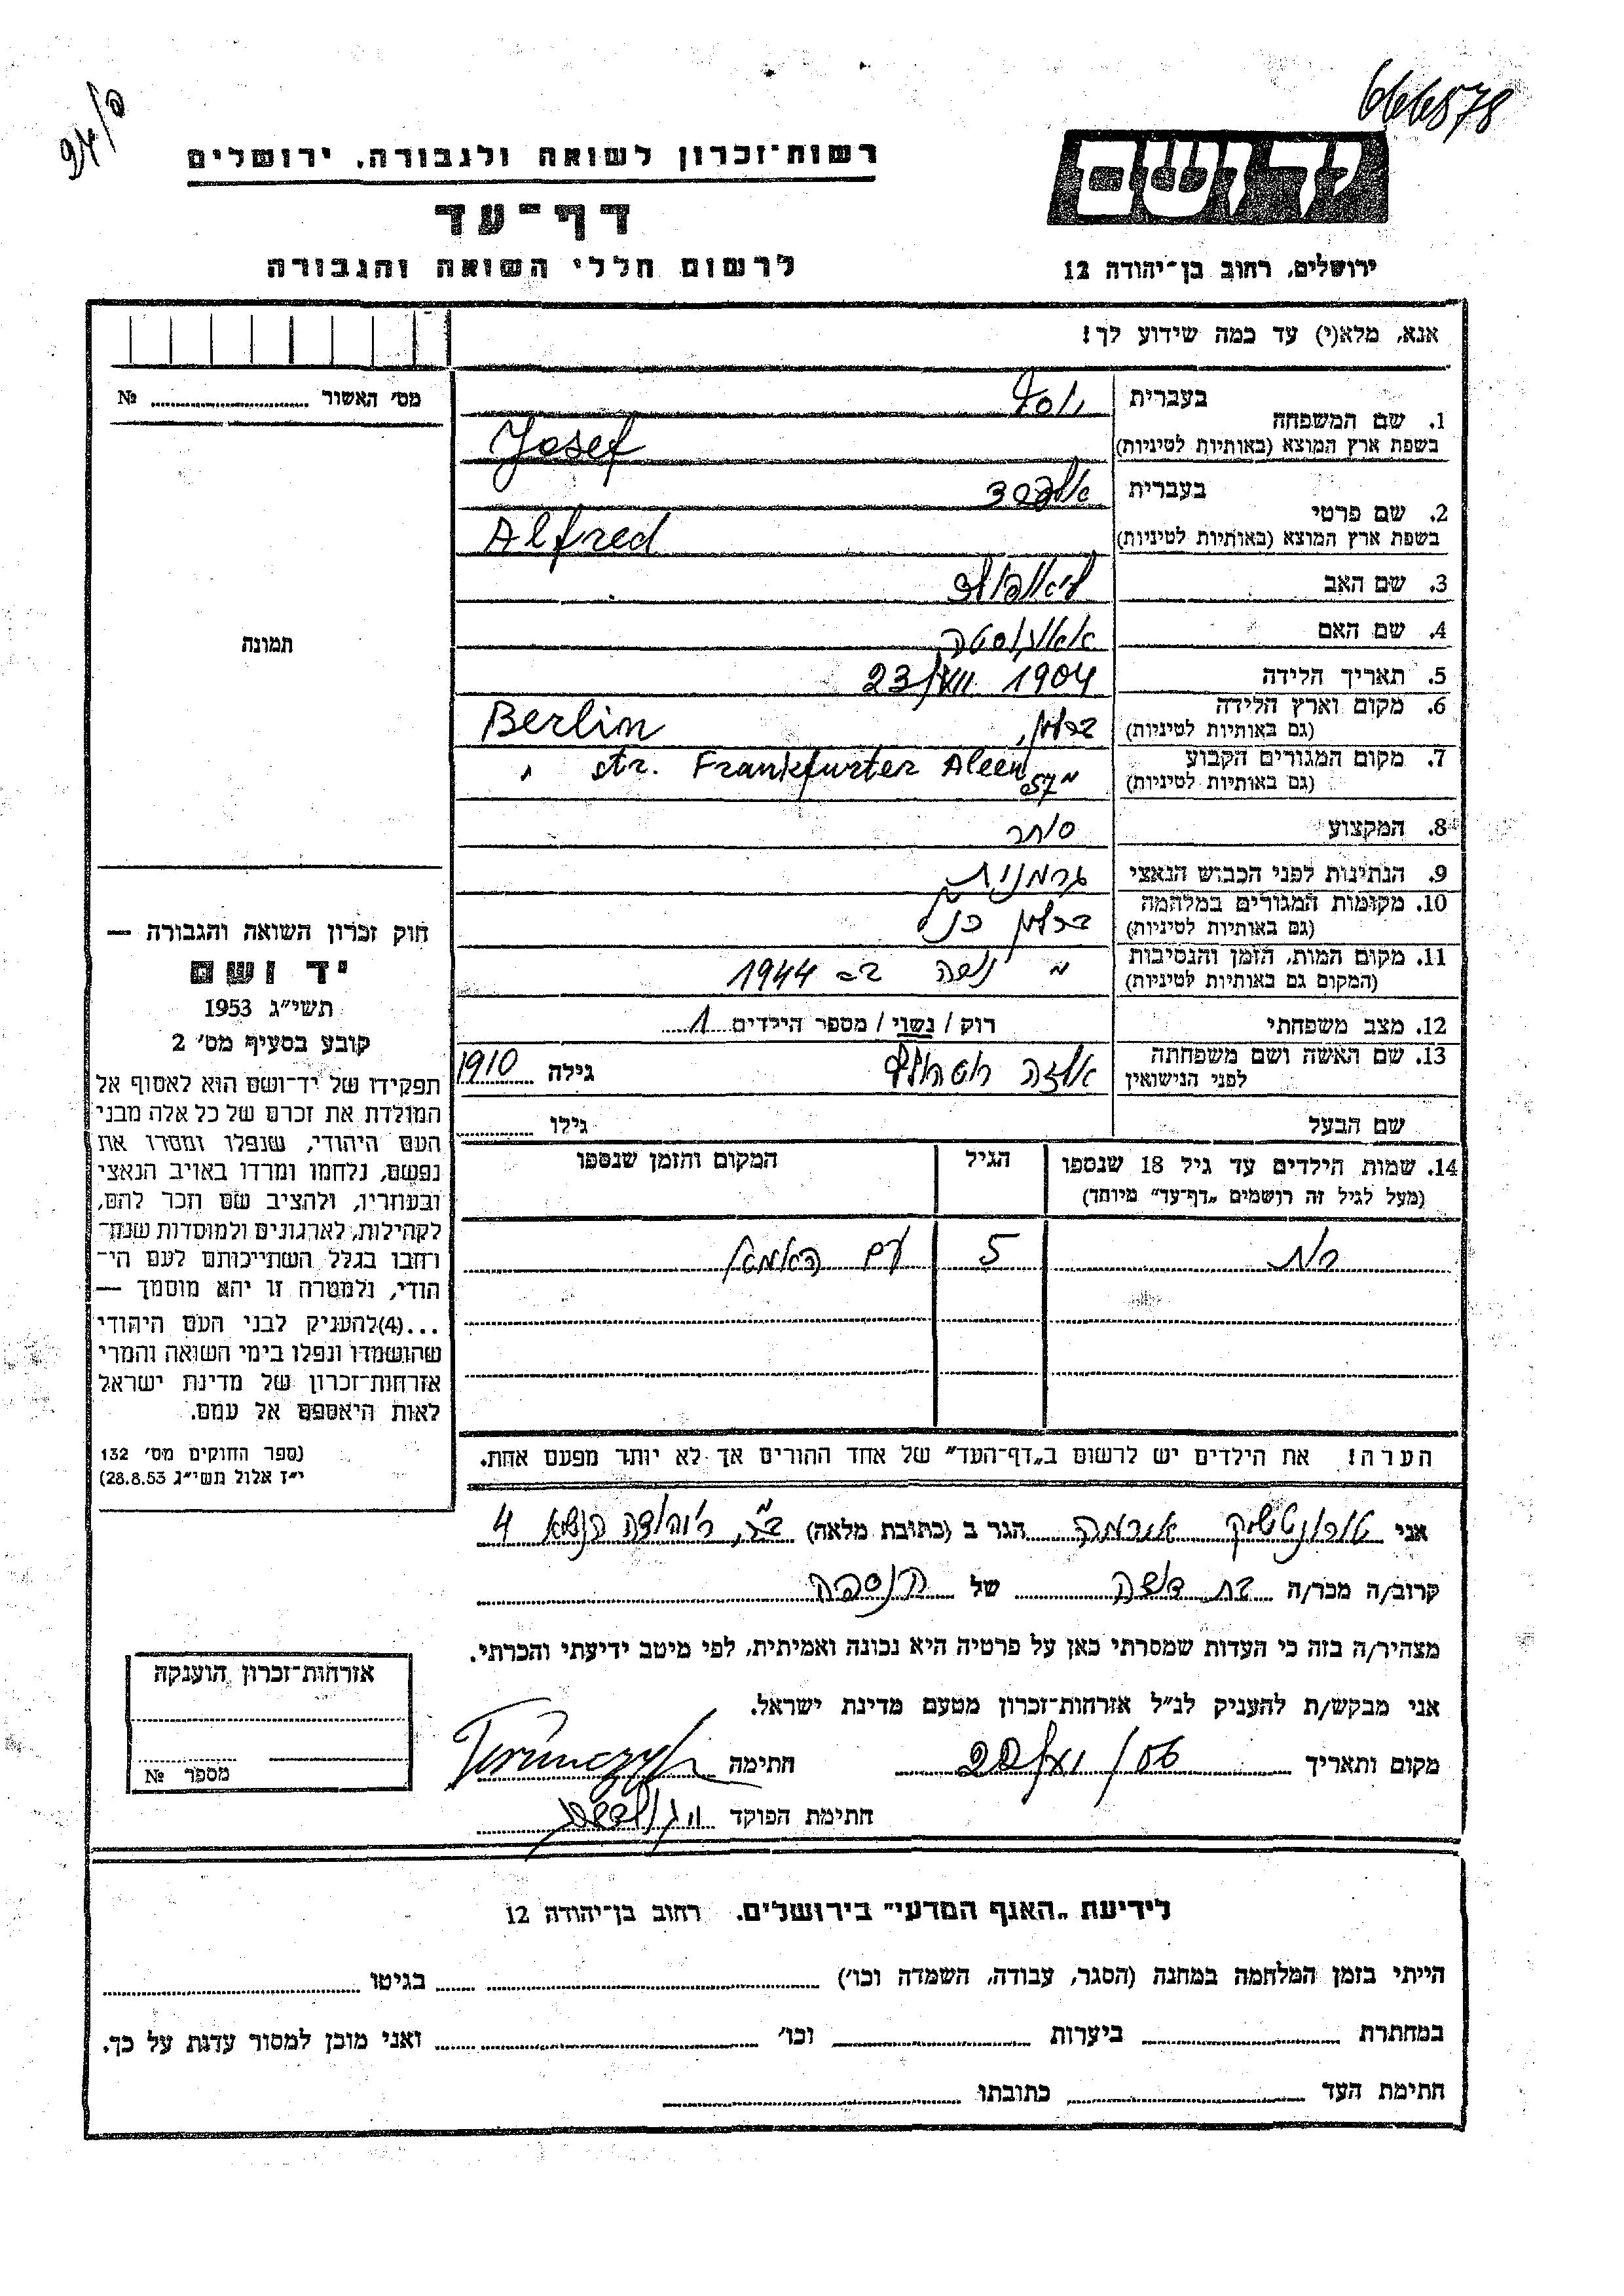 666878
94/פ
רשות־זכרון לשואה ולגבורה, ירושלים
דף־עד
לרשום חללי השואה והגבורה
יד ושם
ירושלים, רחוב בן־יהודה 12
אנא, מלא(י) עד כמה שידוע לך!
מס׳ האשור № 
1. שם המשפחה בעברית יוסף
בשפת ארץ המוצא (באותיות לטיניות) Josef
2. שם פרטי בעברית אלפרד
בשפת ארץ המוצא (באותיות לטיניות) Alfred
3. שם האב
4. שם האם
5. תאריך הלידה 1904
6. מקום וארץ הלידה (גם באותיות לטיניות) ברלין, Berlin
7. מקום המגורים הקבוע (גם באותיות לטיניות) " str. Frankfurter Aleen 57
8. המקצוע סוחר
9. הנתינות לפני הכבוש הנאצי גרמנית
10. מקומות המגורים במלחמה (גם באותיות לטיניות) ברלין כנ״ל
11. מקום המות, הזמן והנסיבות (המקום גם באותיות לטיניות) " נספה ב־ 1944
12. מצב משפחתי רוק / נשוי / מספר הילדים 1
13. שם האשה ושם משפחתה לפני הנישואין אלזה גילה 1910
שם הבעל גילו
14. שמות הילדים עד גיל 18 שנספו
(מעל לגיל זה רושמים „דף־עד” מיוחד)
הגיל
המקום והזמן שנספו
רות 5 עם האמא
הערה! את הילדים יש לרשום ב„דף־העד” של אחד ההורים אך לא יותר מפעם אחת.
תמונה
חוק זכרון השואה והגבורה —
יד ושם
תשי״ג 1953
קובע בסעיף מס׳ 2
תפקידו של יד־ושם הוא לאסוף אל
המולדת את זכרם של כל אלה מבני
העם היהודי, שנפלו ומסרו את
נפשם, נלחמו ומרדו באויב הנאצי
ובעוזריו, ולהציב שם וזכר להם,
לקהילות, לארגונים ולמוסדות שנח־
רבו בגלל השתייכותם לעם הי־
הודי, ולמטרה זו יהא מוסמך —
...(4)להעניק לבני העם היהודי
שהושמדו ונפלו בימי השואה והמרי
אזרחות־זכרון של מדינת ישראל
לאות היאספם אל עמם.
(ספר החוקים מס׳ 132
י״ז אלול תשי״ג 28.8.53)
אני אירמה הגר ב (כתובת מלאה) יהודה הנשיא 4
קרוב/ה מכר/ה בת דודה של הנספה
מצהיר/ה בזה כי העדות שמסרתי כאן על פרטיה היא נכונה ואמיתית, לפי מיטב ידיעתי והכרתי.
אני מבקש/ת להעניק לנ״ל אזרחות־זכרון מטעם מדינת ישראל.
מקום ותאריך חתימה
חתימת הפוקד
אזרחות־זכרון הוענקה
מספר №
לידיעת „האגף המדעי” בירושלים. רחוב בן־יהודה 12
הייתי בזמן המלחמה במחנה (הסגר, עבודה, השמדה וכו׳) בגיטו
במחתרת ביערות וכו׳ ואני מוכן למסור עדות על כך.
חתימת העד כתובתו